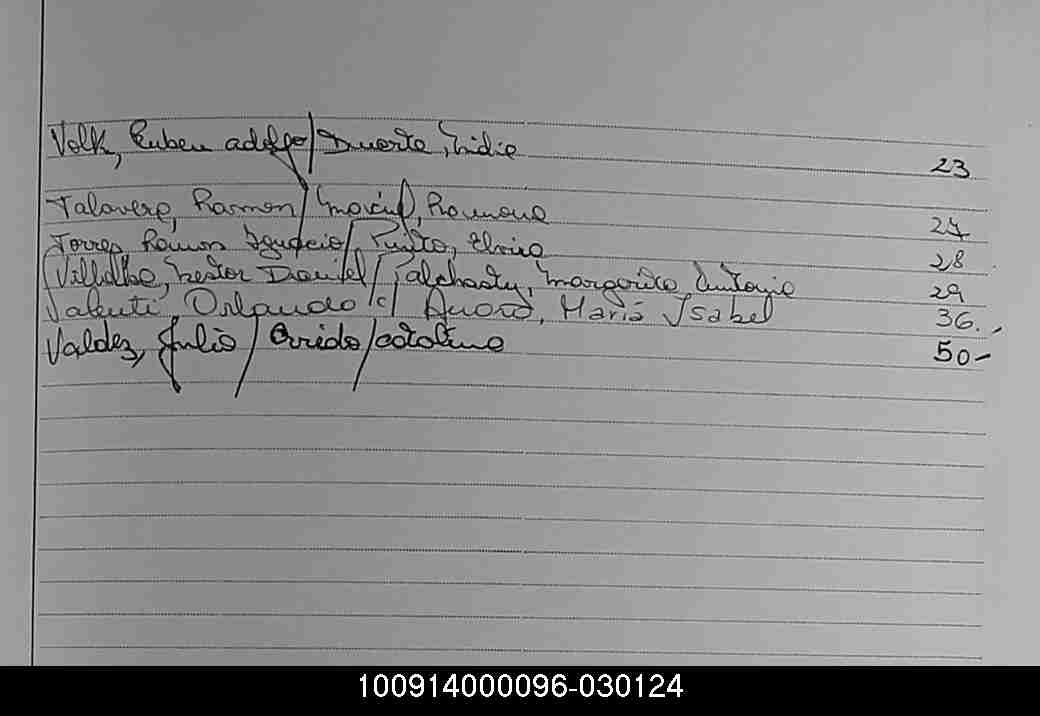 Volk, Ruben adolfo / Duarte, Lidia 23
Talavera, Ramon / Ramona 27
Torres Ramon Ignacio / Pinto, Elvira 28
Villalba, Nestor Daniel / Margarita Antonia 29
Valenti, Orlando c/ María Isabel 36.,
Valdez, Julio / Oviedo / catalina 50-
100914000096-030124